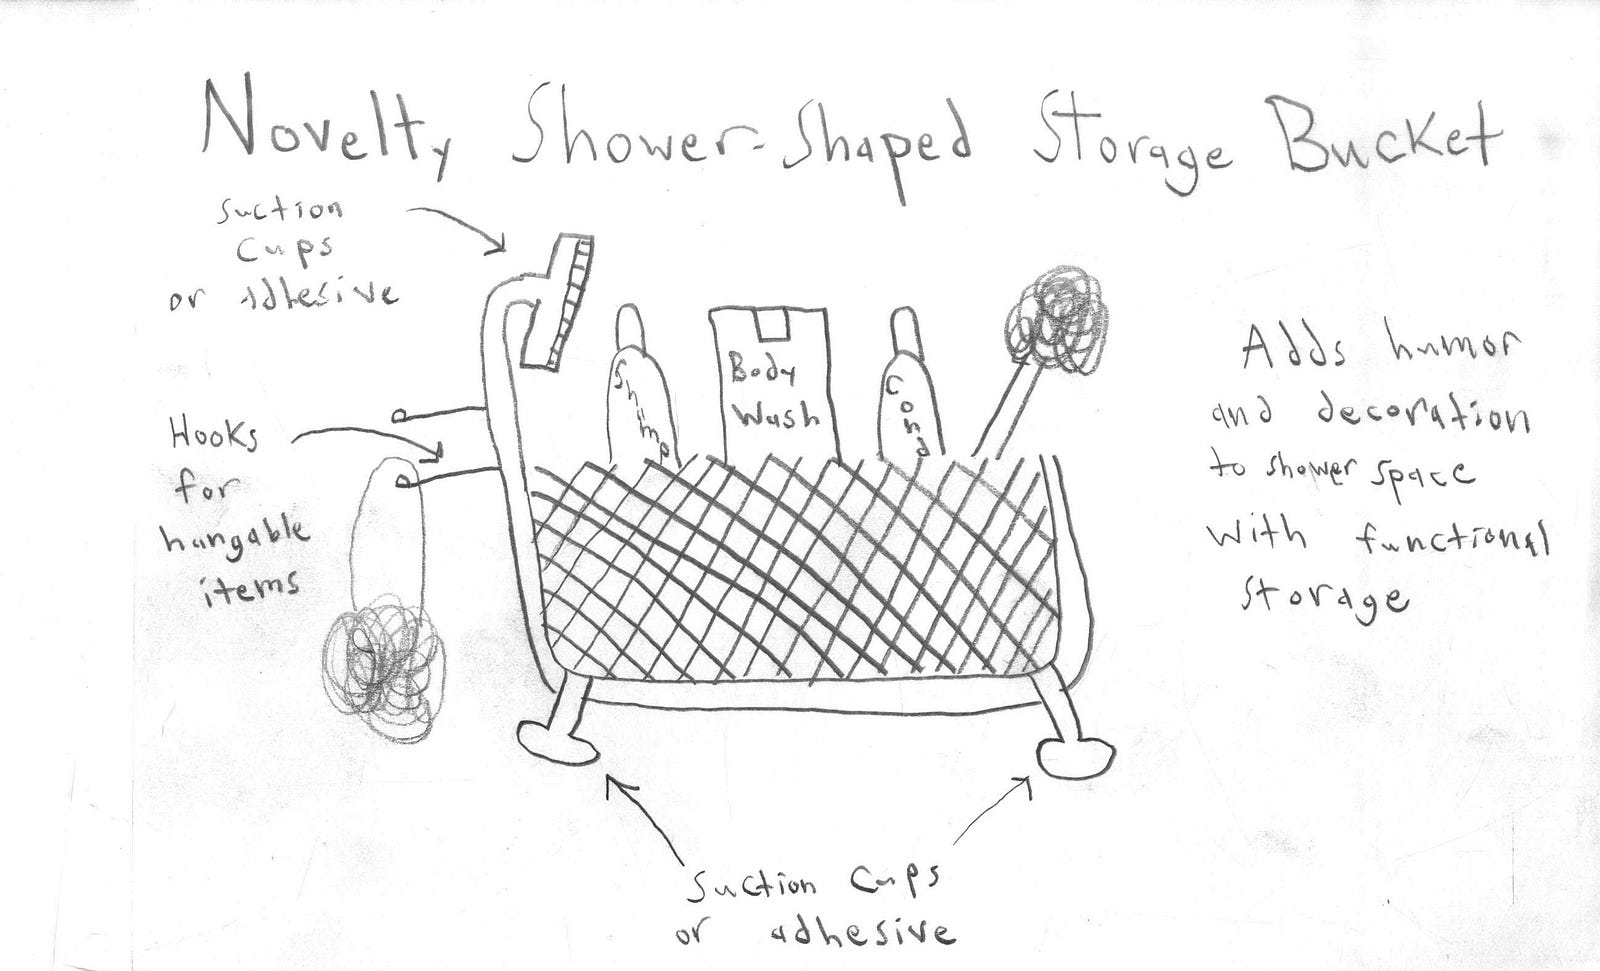 Novelty Shower-Shaped Storage Bucket
Suction
Cups
or adhesive
Hooks
for
hangable
items
Shimp
Body
Wash
Cond
Adds humor
and decoration
to shower space
with functional
storage
Suction Cups
or adhesive